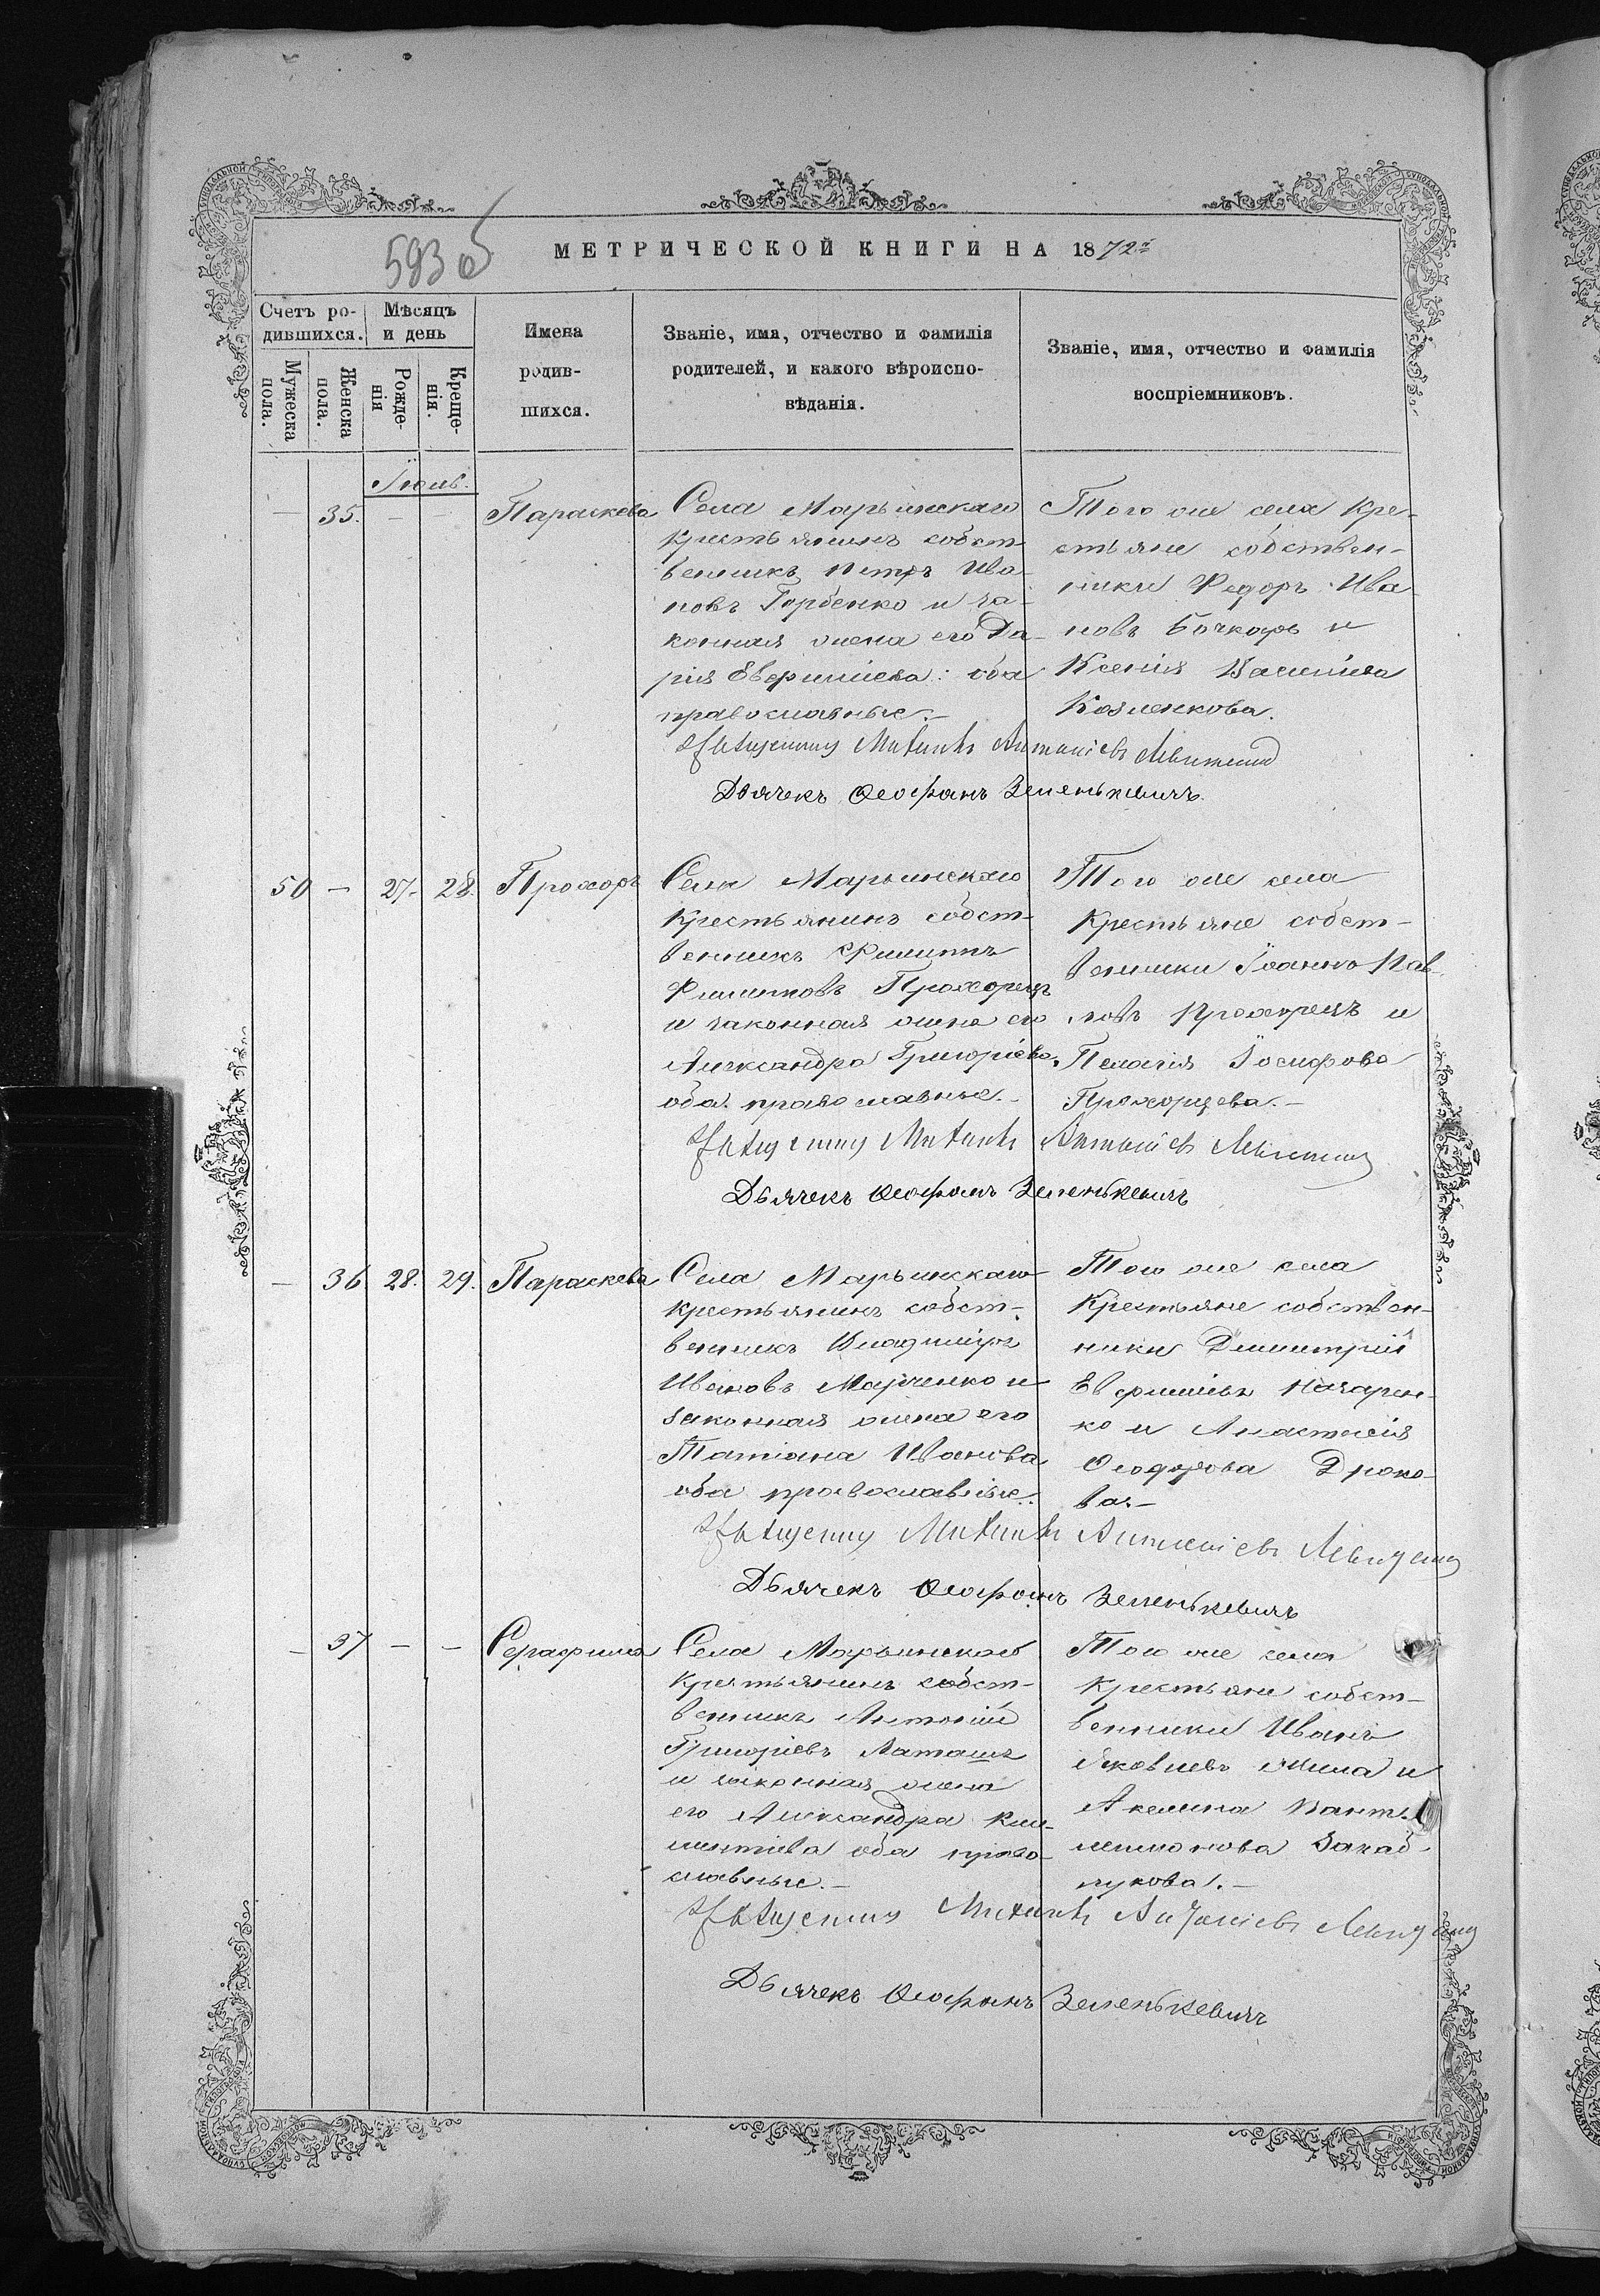 593 об
МЕТРИЧЕСКОЙ КНИГИ НА 1872й
Счетъ ро-
дившихся.
Мѣсяцъ
и день
Мужеска
пола.
Женска
пола.
Рожде-
нія
Креще-
нія.
Имена
родив-
шихся.
Званіе, имя, отчество и фамилія
родителей, и какого вѣроиспо-
вѣданія.
Званіе, имя, отчество и фамилія
воспріемниковъ.
Іюль.
— 35. — — Параскева
Села Марьинскаго
крестьянинъ собст-
венникъ Петръ Ива-
новъ Горбенко и за-
конная жена его Да-
рія Евфиміева: оба
православные.—
Того же села кре-
стьяне собствен-
ники Федоръ Ива-
новъ Бочкаръ и
Ксенія Василіева
Козленкова.
Священникъ Михаилъ Антоніевъ
Дьячекъ Ѳеофанъ Зеленькевичъ.
50 — 27. 28. Прохоръ
Села Марьинскаго
крестьянинъ собст-
венникъ Филиппъ
Филиповъ Прохорецъ
и законная жена его
Александра Григоріева,
оба православные.—
Того же села
крестьяне собст-
венники Іоаннъ Пав-
ловъ Прохорецъ и
Пелагія Іосифова
Прохорцева.—
Священникъ Михаилъ Антоніевъ
Дьячекъ Ѳеофанъ Зеленькевичъ
— 36. 28. 29. Параскева
Села Марьинскаго
крестьянинъ собст-
венникъ Владиміръ
Ивановъ Марченко и
законная жена его
Татіана Иванова
оба православные.
Того же села
крестьяне собствен-
ники Димитрій
Евфиміевъ Назарен-
ко и Анастасія
Ѳеодорова Дроко-
ва.—
Священникъ Михаилъ Антоніевъ
Дьячекъ Ѳеофанъ Зеленькевичъ
— 37 — — Серафима
Села Марьинскаго
крестьянинъ собст-
венникъ Антоній
Григоріевъ Латашъ
и законная жена
его Александра Кли-
ментіева оба право-
славные.—
Того же села
крестьяне собст-
венники Иванъ
Яковлевъ и
Акелина Пант-
лешонова
Священникъ Михаилъ Антоніевъ
Дьячекъ Ѳеофанъ Зеленькевичъ